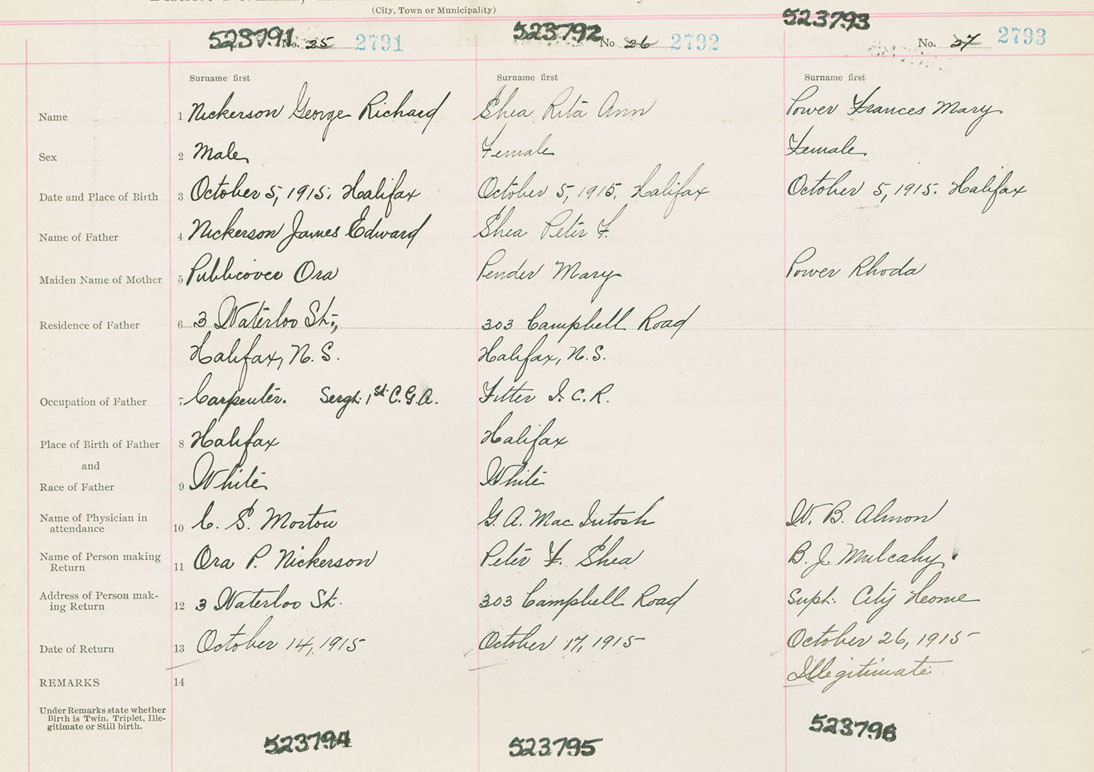 (City, Town or Municipality)
523791 No. 25 2791
523792 No 26 2792
523793 No. 27 2793
Surname first Surname first Surname first
Name 1 Nickerson George Richard Shea Rita Ann Power Frances Mary
Sex 2 Male Female Female
Date and Place of Birth 3 October 5, 1915. Halifax October 5, 1915. Halifax October 5, 1915. Halifax
Name of Father 4 Nickerson James Edward Shea Peter F.
Maiden Name of Mother 5 Publicover Ora Pender Mary Power Rhoda
Residence of Father 6 3 Waterloo St., 303 Campbell Road
Halifax, N.S. Halifax, N.S.
Occupation of Father 7 Carpenter. Sergt. 1st C.G.A. Fitter I.C.R.
Place of Birth of Father 8 Halifax Halifax
and
Race of Father 9 White White
Name of Physician in
attendance 10 C. S. Morton G.A. MacIntosh W. B. Almon
Name of Person making
Return 11 Ora P. Nickerson Peter F. Shea B. J. Mulcahy
Address of Person mak-
ing Return 12 3 Waterloo St. 303 Campbell Road Supt. City Home
Date of Return 13 October 14, 1915 October 17, 1915 October 26, 1915
REMARKS 14 Illegitimate
Under Remarks state whether
Birth is Twin, Triplet, Ille-
gitimate or Still birth.
523794 523795 523796